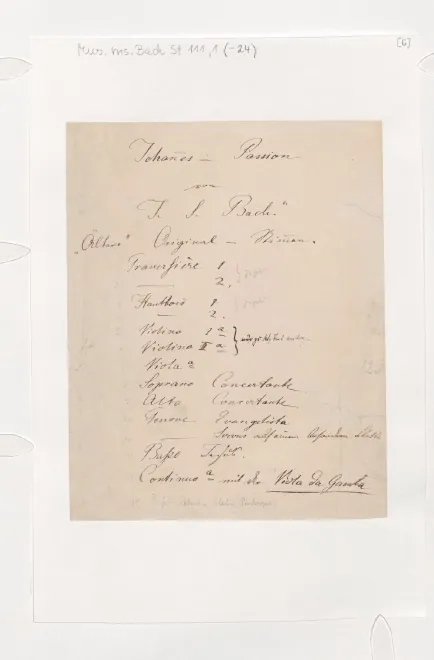 Mus. ms. Bach St 111,1 (-24)
[6]
Johan̄es = Passion
von
J. S. Bach."
„Ältere" Original = Stim̄en.
Traversière 1
2.
Hautbois 1
2.
Violino 1 a
Violino II a
Viola a
Soprano Concertante
Alto Concertante
Tenore Evangelista
Servus
Basso Jesus.
Continuo a mit der Viola da Gamba